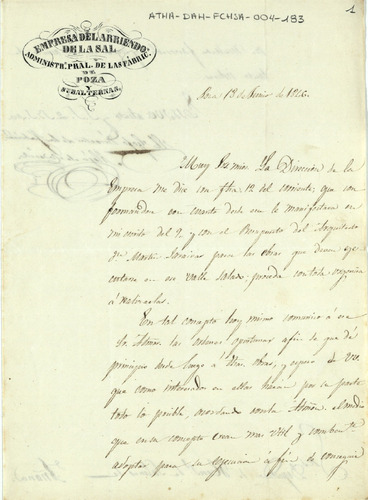 ATHA-DAH-FCHSA-004-183
1
EMPRESA DEL ARRIENDO
DE LA SAL
ADMINISTR.ⁿ PRAL. DE LAS FÁBRIC.ˢ
DE
POZA
Y SUBALTERNAS.
Poza 13 de Junio de 1846.
Muy Sr mio: La Dirección de la
Empresa me dice con fha. 12 del corriente, que con
formandose con cuanto dectª se le manifestara en
mi escrito del 9, y con el Presupuesto del Arquitecto
Dn Martin para las obras que deven eje
cutarse en ese Valle Salado, proceda con toda
á realizarlas.
En tal concepto hoy mismo comunico á esa
Admon. las ordenes oportunas afin de que dé
principio desde luego á dhas. obras, y espero de Vds.
que como interesados en ellas haran por su parte
todo lo posible, acordando con la Admon. el medio
que en su concepto crean mas util y combente
adoptar para su ejecucion á fin de conseguir